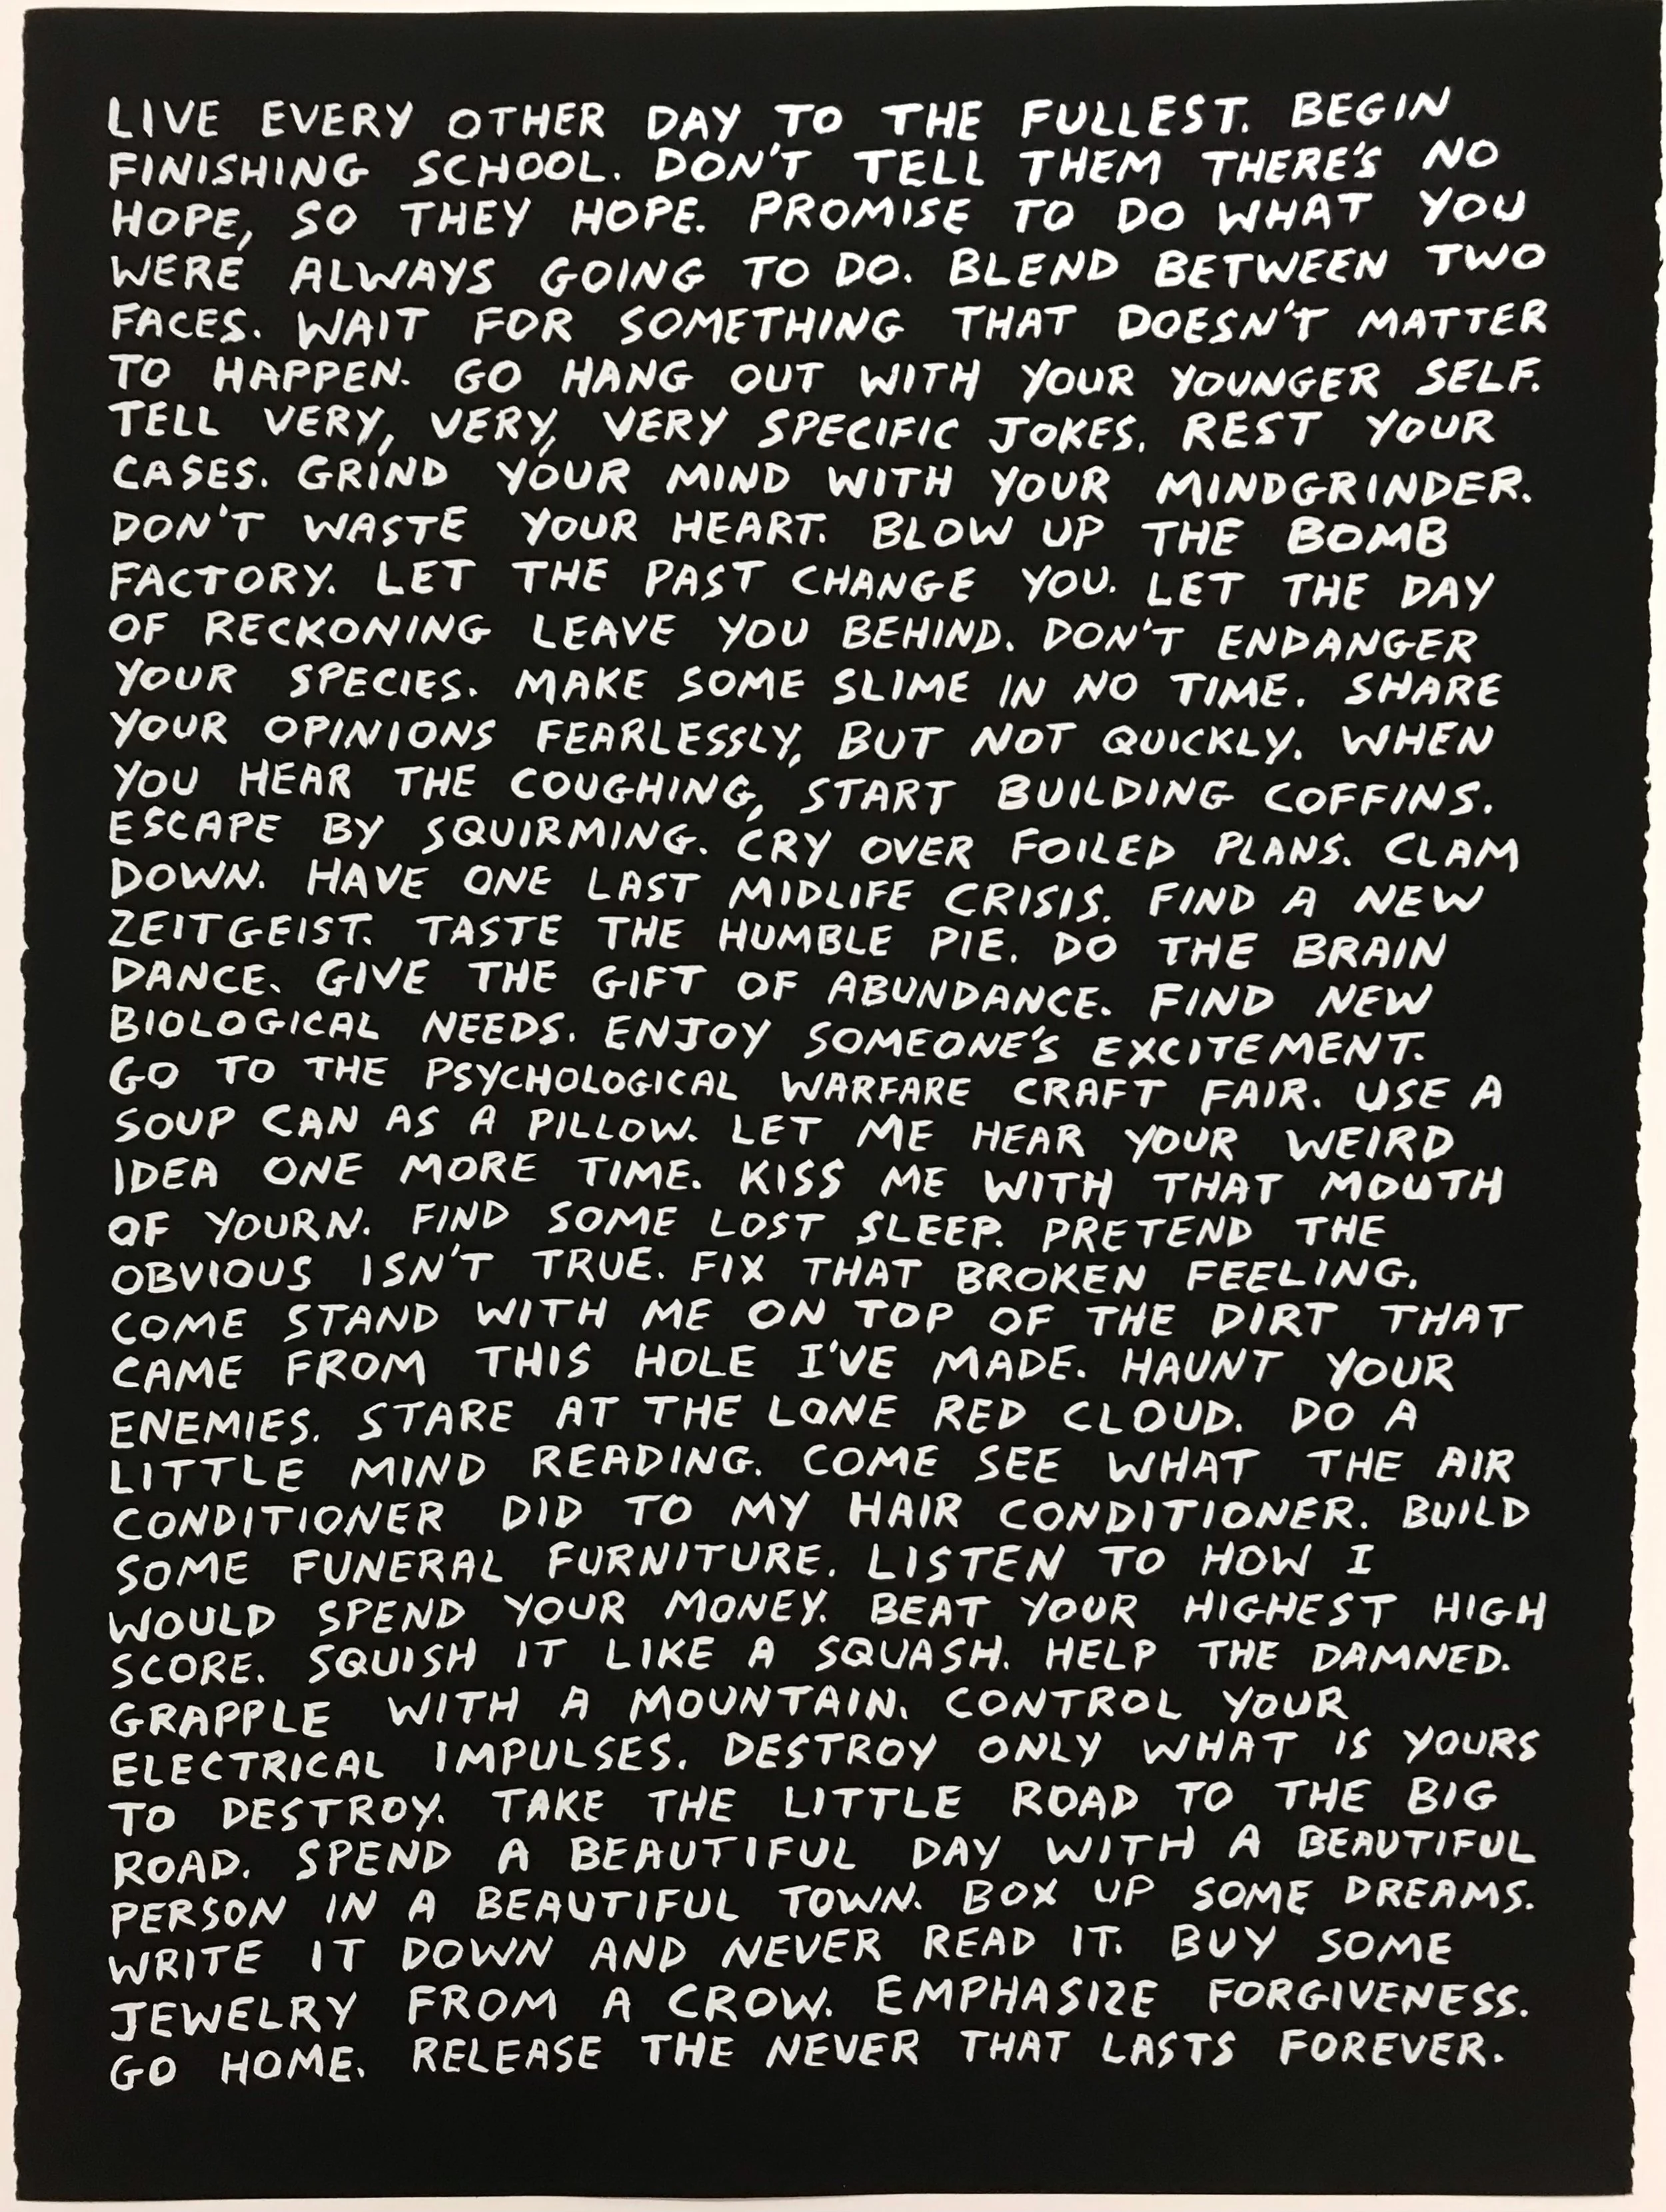 LIVE EVERY OTHER DAY TO THE FULLEST. BEGIN
FINISHING SCHOOL. DON'T TELL THEM THERE'S NO
HOPE, SO THEY HOPE. PROMISE TO DO WHAT YOU
WERE ALWAYS GOING TO DO. BLEND BETWEEN TWO
FACES. WAIT FOR SOMETHING THAT DOESN'T MATTER
TO HAPPEN. GO HANG OUT WITH YOUR YOUNGER SELF.
TELL VERY, VERY, VERY SPECIFIC JOKES. REST YOUR
CASES. GRIND YOUR MIND WITH YOUR MINDGRINDER.
DON'T WASTE YOUR HEART. BLOW UP THE BOMB
FACTORY. LET THE PAST CHANGE YOU. LET THE DAY
OF RECKONING LEAVE YOU BEHIND. DON'T ENDANGER
YOUR SPECIES. MAKE SOME SLIME IN NO TIME. SHARE
YOUR OPINIONS FEARLESSLY, BUT NOT QUICKLY. WHEN
YOU HEAR THE COUGHING, START BUILDING COFFINS.
ESCAPE BY SQUIRMING. CRY OVER FOILED PLANS. CLAM
DOWN. HAVE ONE LAST MIDLIFE CRISIS. FIND A NEW
ZEITGEIST. TASTE THE HUMBLE PIE. DO THE BRAIN
DANCE. GIVE THE GIFT OF ABUNDANCE. FIND NEW
BIOLOGICAL NEEDS. ENJOY SOMEONE'S EXCITEMENT.
GO TO THE PSYCHOLOGICAL WARFARE CRAFT FAIR. USE A
SOUP CAN AS A PILLOW. LET ME HEAR YOUR WEIRD
IDEA ONE MORE TIME. KISS ME WITH THAT MOUTH
OF YOURN. FIND SOME LOST SLEEP. PRETEND THE
OBVIOUS ISN'T TRUE. FIX THAT BROKEN FEELING.
COME STAND WITH ME ON TOP OF THE DIRT THAT
CAME FROM THIS HOLE I'VE MADE. HAUNT YOUR
ENEMIES. STARE AT THE LONE RED CLOUD. DO A
LITTLE MIND READING. COME SEE WHAT THE AIR
CONDITIONER DID TO MY HAIR CONDITIONER. BUILD
SOME FUNERAL FURNITURE. LISTEN TO HOW I
WOULD SPEND YOUR MONEY. BEAT YOUR HIGHEST HIGH
SCORE. SQUISH IT LIKE A SQUASH. HELP THE DAMNED.
GRAPPLE WITH A MOUNTAIN. CONTROL YOUR
ELECTRICAL IMPULSES. DESTROY ONLY WHAT IS YOURS
TO DESTROY. TAKE THE LITTLE ROAD TO THE BIG
ROAD. SPEND A BEAUTIFUL DAY WITH A BEAUTIFUL
PERSON IN A BEAUTIFUL TOWN. BOX UP SOME DREAMS.
WRITE IT DOWN AND NEVER READ IT. BUY SOME
JEWELRY FROM A CROW. EMPHASIZE FORGIVENESS.
GO HOME. RELEASE THE NEVER THAT LASTS FOREVER.